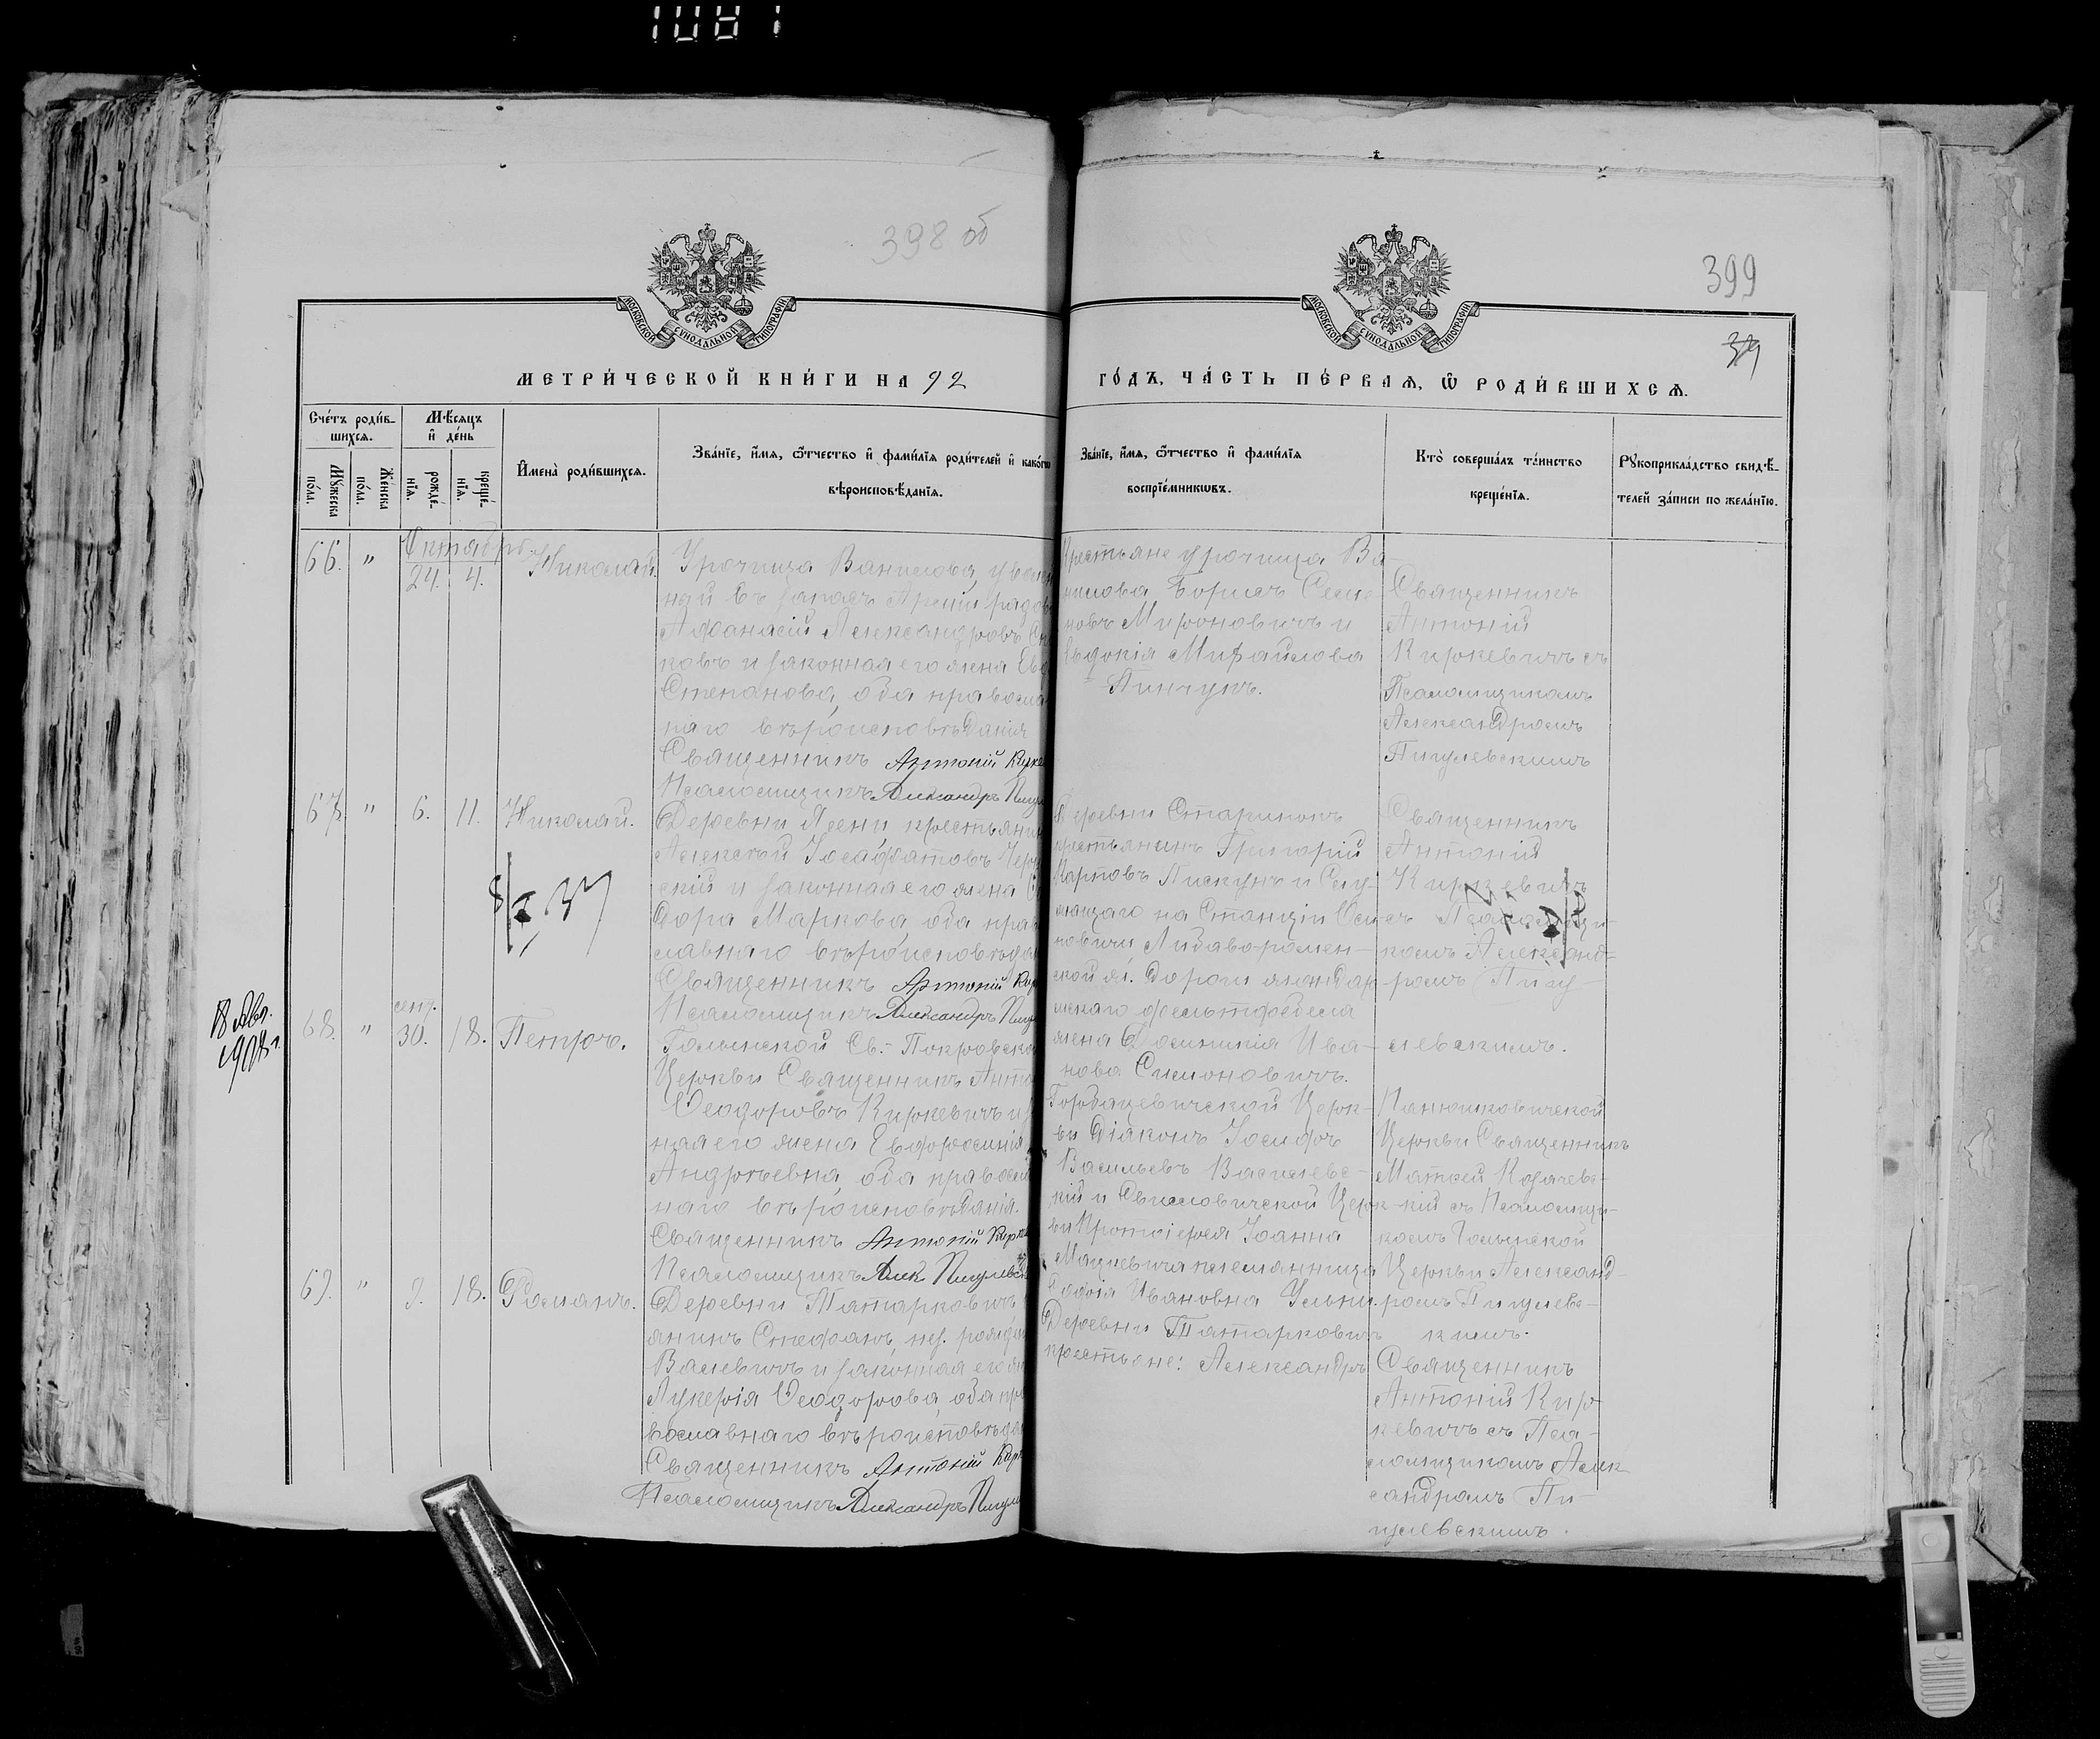 1081
398 об
399
39
МОСКОВСКОЙ СѴНОДАЛЬНОЙ ТИПОГРАФІИ
МОСКОВСКОЙ СѴНОДАЛЬНОЙ ТИПОГРАФІИ
МЕТРИ́ЧЕСКОЙ КНИ́ГИ НА 92
ГО́ДЪ, ЧА́СТЬ ПЕ́РВАѦ, Ѡ҆ РОДИ́ВШИХСѦ.
Сче́тъ роди́в-
шихсѧ.
Мꙋ́жеска по́ла.
Же́нска по́ла.
Мѣ́сѧцъ
и҆ де́нь
рожде́-
нїѧ.
креще́-
нїѧ.
И҆мена̀ роди́вшихсѧ.
Зва́нїе, и҆́мѧ, ѻ҆́тчество и҆ фами́лїѧ роди́телей и҆ како́гѡ
вѣроисповѣ́данїѧ.
Зва́нїе, и҆́мѧ, ѻ҆́тчество и҆ фами́лїѧ
воспрїе́мникѡвъ.
Кто̀ соверша́лъ та́инство
креще́нїѧ.
Рꙋкоприкла́дство свидѣ́-
телей за́писи по жела́нїю.
Октябрь.
66. " 24. 4. Николай.
Урочища Ванилова, уволен
ный въ запасъ Арміи рядов
Аѳанасій Александровъ
ковъ и законная его жена Евд
Степанова, оба православ
наго вѣроисповѣданія
Священникъ Антоній Кирке
Псаломщикъ Александръ Пигул
Крестьяне урочища Ва-
нилова Борисъ Семе-
новъ Мироновичъ и
Евдокія Михайлова
Пинчукъ.
Священникъ
Антоній
Киркевичъ съ
Псаломщикомъ
Александромъ
Пигулевскимъ
67. " 6. 11. Николай.
Деревни Ясени, крестьянин
Алексѣй Іосафатовъ Черн
скій и законная его жена
дора Маркова, оба право
славнаго вѣроисповѣдан
Священникъ Антоній Кир
Псаломщикъ Александръ Пигул
Деревни Старинокъ
крестьянинъ Григорій
Карповъ Пискунъ и Слу-
жащаго на Станціи Оси-
повичи Либаво-ромен-
ской ж. дороги жандар-
мскаго фельтфебеля
жена Досиѳія Ива-
нова Симоновичъ.
Священникъ
Антоній
Киркевичъ
съ Псаломщи-
комъ Александ-
ромъ Пигу-
левскимъ.
18 Авг.
1908 г.
68. " сент. 30. 18. Петръ.
Голынской Св.-Покровской
Церкви Священникъ Анто
Ѳеодоровъ Киркевичъ и
ная его жена Евфросинія
Андреевна, оба православ
наго вѣроисповѣданія.
Священникъ Антоній Кирке
Псаломщикъ Алек. Пигулевск
Горбацевичской Церк-
ви Діаконъ Іосифъ
Васильевъ Василевс-
кій и Свислочской Церк-
ви Протоіерея Іоанна
Мацкевича племянница
Софія Ивановна
Панюшковичской
Церкви Священникъ
Матѳей Кударевс-
кій съ Псаломщи-
комъ Голынской
Церкви Александ-
ромъ Пигулевс-
кимъ.
69. " 9. 18. Романъ.
Деревни Татарковичъ
янинъ Стефанъ, нез. рожден
Валевичъ и законная его же
Лукерія Ѳеодорова, оба пра
вославнаго вѣроисповѣдан
Священникъ Антоній Кирк
Псаломщикъ Александръ Пигул
Деревни Татарковичъ
крестьяне: Александръ
Священникъ
Антоній Кир-
кевичъ съ Пса-
ломщикомъ Алек
сандромъ Пи-
гулевскимъ.